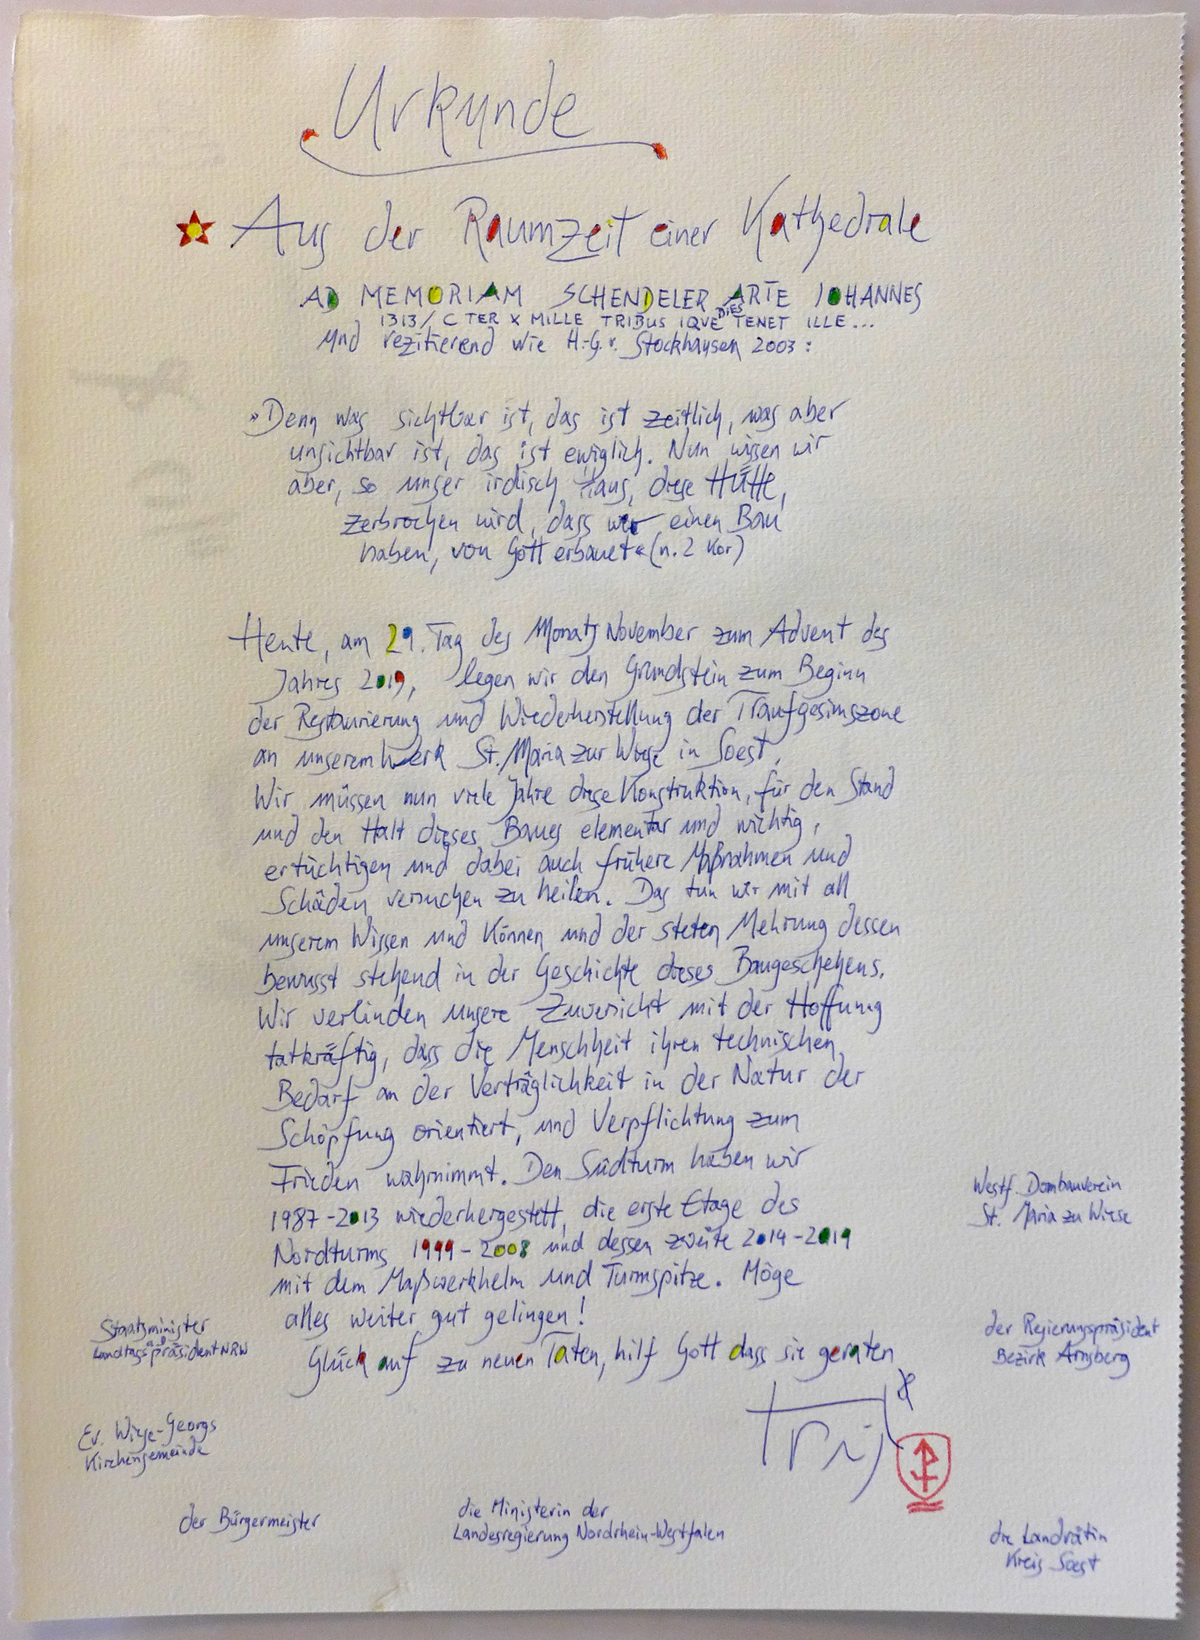 Urkunde
Aus der Raumzeit einer Kathedrale
AD MEMORIAM SCHENDELER ARTE JOHANNES
1313 / C TER X MILLE TRIBUS IQVE DIES TENET ILLE...
und rezitierend wie H.-G. v. Stockhausen 2003:
»Denn was sichtbar ist, das ist zeitlich, was aber
unsichtbar ist, das ist ewiglich. Nun wissen wir
aber, so unser irdisch Haus, diese Hütte,
zerbrochen wird, dass wir einen Bau
haben, von Gott erbauet« (n. 2 Kor)
Heute, am 29. Tag des Monats November zum Advent des
Jahres 2019, legen wir den Grundstein zum Beginn
der Restaurierung und Wiederherstellung der Traufgesimszone
an unserem Werk St. Maria zur Wiese in Soest.
Wir müssen nun viele Jahre diese Konstruktion, für den Stand
und den Halt dieses Baues elementar und wichtig,
ertüchtigen und dabei auch frühere Maßnahmen und
Schäden versuchen zu heilen. Das tun wir mit all
unserem Wissen und Können und der steten Mehrung dessen
bewusst stehend in der Geschichte dieses Baugeschehens.
Wir verbinden unsere Zuversicht mit der Hoffnung
tatkräftig, dass die Menschheit ihren technischen
Bedarf an der Verträglichkeit in der Natur der
Schöpfung orientiert, und Verpflichtung zum
Frieden wahrnimmt. Den Südturm haben wir
1987-2013 wiederhergestellt, die erste Etage des
Nordturms 1999-2008 und dessen zweite 2014-2019
mit dem Maßwerkhelm und Turmspitze. Möge
alles weiter gut gelingen!
Glück auf zu neuen Taten, hilf Gott dass sie geraten
Westf. Dombauverein
St. Maria zu Wiese
Staatsminister
Landtagspräsident a.D. NRW
der Regierungspräsident
Bezirk Arnsberg
Ev. Wiese-Georgs
Kirchengemeinde
der Bürgermeister
die Ministerin der
Landesregierung Nordrhein-Westfalen
die Landrätin
Kreis Soest